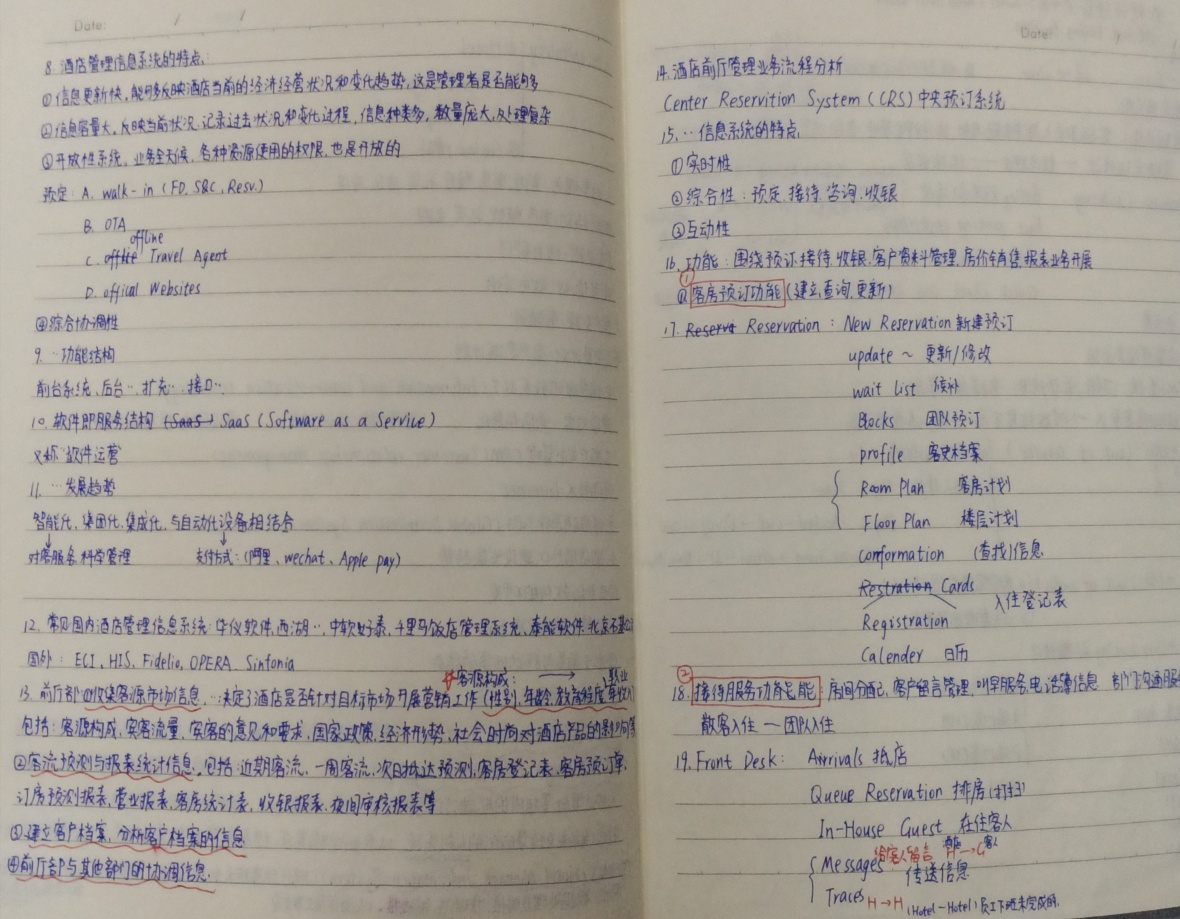 Date:
8. 酒店管理信息系统的特点:
①信息更新快,能够反映酒店当前的经济经营状况和变化趋势,这是管理者是否能够
②信息容量大,反映当前状况.记录过去状况和变化过程,信息种类多,数量庞大,处理复杂
③开放性系统,业务全天候,各种资源使用的权限,也是开放的
预定: A. walk-in (FD, S&C, Resv.)
B. OTA
offline
C. Travel Agent
D. offical Websites
④综合协调性
9. ··功能结构
前台系统、后台··、扩充··、接口··
10. 软件即服务结构 (SaaS) SaaS (Software as a Service)
又称"软件运营"
11. ··发展趋势
智能化、集团化、集成化、与自动化设备相结合
对客服务,科学管理 支付方式:(阿里、wechat、Apple pay)
12. 常见国内酒店管理信息系统:华仪软件,西湖··,中软好泰,千里马饭店管理系统、泰能软件.北京
国外: ECI, HIS, Fidelio, OPERA Sinfonia
客源构成: → 职业
13. 前厅部①收集客源市场信息, ··决定了酒店是否针对目标市场开展营销工作(性别,年龄,教育程度,年收入)
包括:客源构成,宾客流量,宾客的意见和要求,国家政策,经济形势,社会时尚对酒店产品的影响等
②客流预测与报表统计信息,包括:近期客流,一周客流,次日抵达预测,客房登记表,客房预订单,
订房预测报表,营业报表,客房统计表,收银报表,夜间审核报表等
③建立客户档案,分析客户档案的信息
④前厅部与其他部门的协调信息.
Date:
14. 酒店前厅管理业务流程分析
Center Reservition System (CRS) 中央预订系统
15. ··信息系统的特点,
①实时性
②综合性:预定.接待.咨询.收银
③互动性
16. 功能:围绕预订.接待.收银.客户资料管理.房价销售.报表业务开展
① 客房预订功能 (建立.查询.更新)
17. Reservt Reservation: New Reservation 新建预订
update ~ 更新/修改
wait list 候补
Blocks 团队预订
profile 客史档案
Room Plan 客房计划
Floor Plan 楼层计划
comformation (查找)信息
Restration Cards
入住登记表
Registration
Calender 日历
②
18. 接待服务功能 : 房间分配,客户留言管理,叫早服务,电话簿信息 部门沟通服
散客入住 — 团队入住
19. Front Desk: Arrivals 抵店
Queue Reservation 排房(打扫)
In-House Guest 在住客人
Messages 给客人留言 H→G 酒店 客人
传送信息
Traces H→H (Hotel-Hotel) 员工下班未完成的